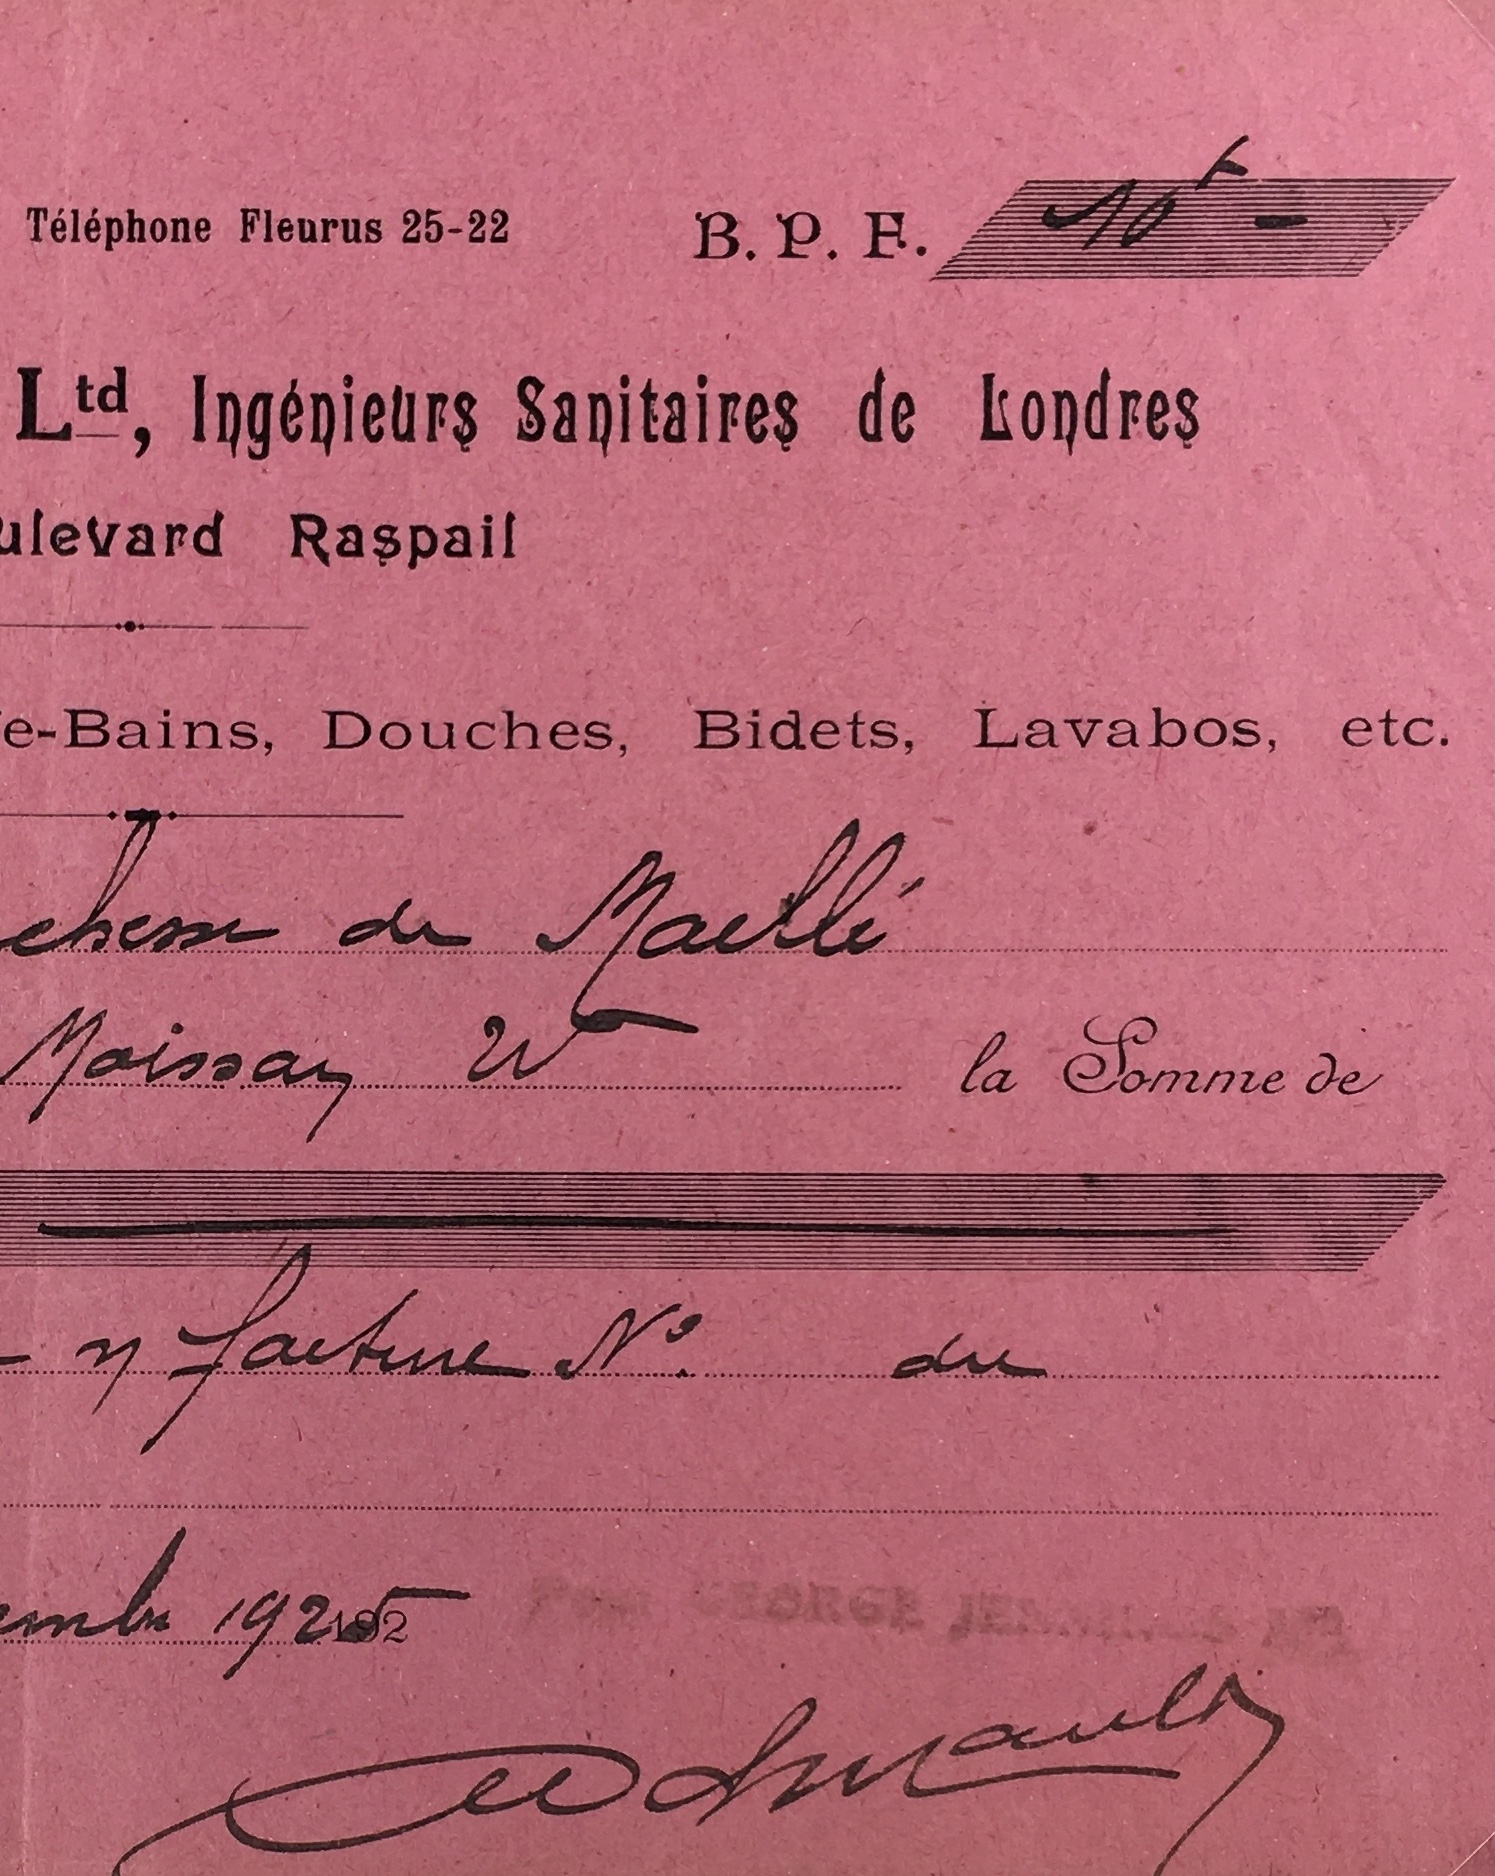 Téléphone Fleurus 25-22 B. P. F. 10f -
Ltd, Ingénieurs Sanitaires de Londres
ulevard Raspail
e-Bains, Douches, Bidets, Lavabos, etc.
chesse de Maillé
Moissay la Somme de
n/ facture No. du
embre 1925 192
Pour GEORGE JENNINGS Ltd